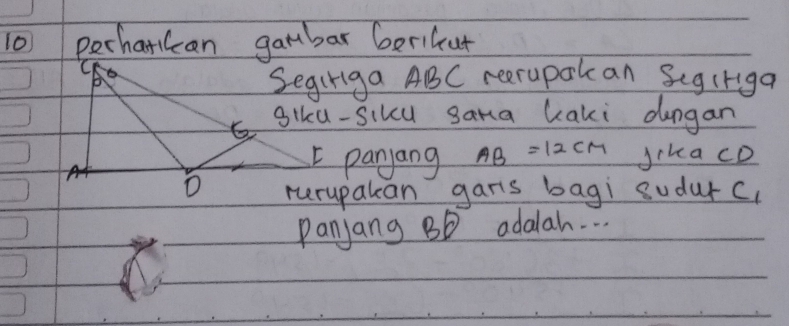 10 perhatikan gambar berikut
C
Segitiga ABC merupakan Segitiga
siku-siku sama kaki dengan
E
A D I panjang AB = 12 CM jika CD
merupakan garis bagi sudut C,
panjang BD adalah...